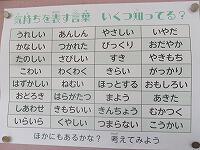 気持ちを表す言葉　いくつ知ってる？
うれしい　あんしん　やさしい　いやだ
かなしい　つかれた　びっくり　おだやか
たのしい　さびしい　すき　やきもち
こわい　わくわく　きらい　がっかり
はずかしい　ねむい　ほっとする　おもしろい
おどろき　はらがたつ　まよう　あきた
しあわせ　きもちいい　きんちょう　むかつく
いらいら　くやしい　つまらない　こうかい
ほかにもあるかな？　考えてみよう